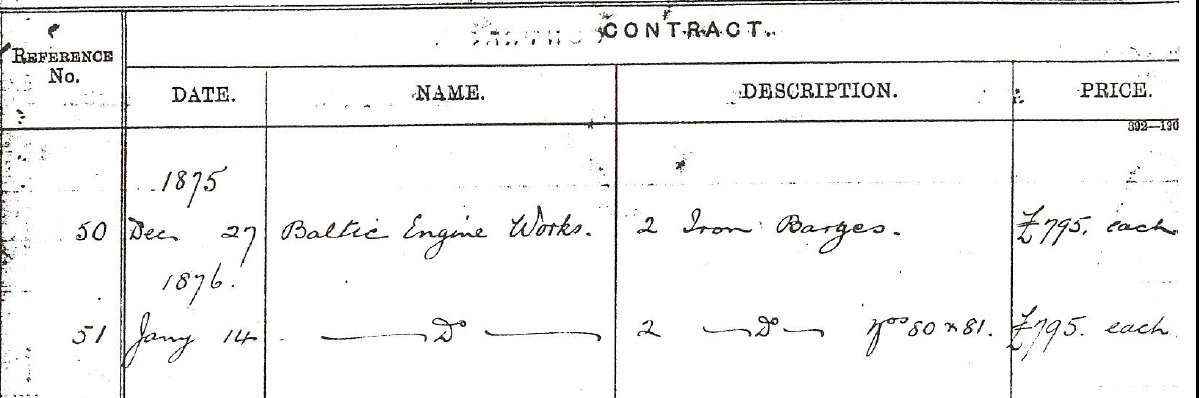 CONTRACT.
REFERENCE No. DATE. NAME. DESCRIPTION. PRICE.
392—190
1875
50 Dec 27 Baltic Engine Works. 2 Iron Barges. £795. each
1876.
51 Jany 14 — Do — 2 — Do — Nos 80 & 81. £795. each